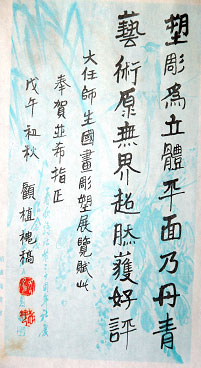 塑彫為立體平面乃丹青
藝術原無界超脫獲好評
大任師生國畫彫塑展覽賦此
奉賀並希指正
戊午初秋 顧植槐稿